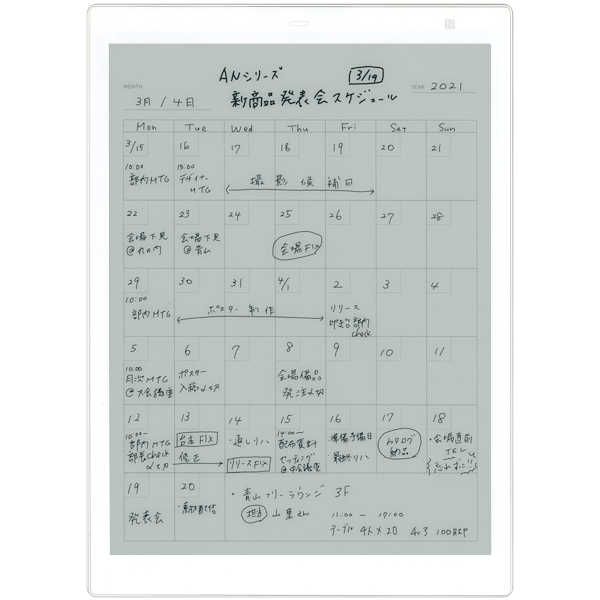 ANシリーズ
3/19
MONTH
3月 / 4日
新商品発表会スケジュール
YEAR 2021
Mon Tue Wed Thu Fri Sat Sun
3/15 16 17 18 19 20 21
10:00
部内MTG
15:00
デザイナー
MTG
撮影候補日
22 23 24 25 26 27 28
会場下見
@丸の内
会場下見
@青山
会場FIX
29 30 31 4/1 2 3 4
10:00
部内MTG
ポスター制作
リリース
部内
check
5 6 7 8 9 10 11
10:00
月次MTG
@大会議室
ポスター
入稿〆切
会場備品
発注〆切
12 13 14 15 16 17 18
10:00-
部内MTG
部長check
〆切
台本FIX
修正
・通しリハ
リリースFIX
14:00〜
配布資料
セッティング
@中会議室
・準備予備日
・最終リハ
カタログ
納品
・会場直前
TEL
忘れずに!!
19 20
発表会
・青山フリーラウンジ 3F
担当 山里さん
11:00 — 17:00
テーブル 4人×20